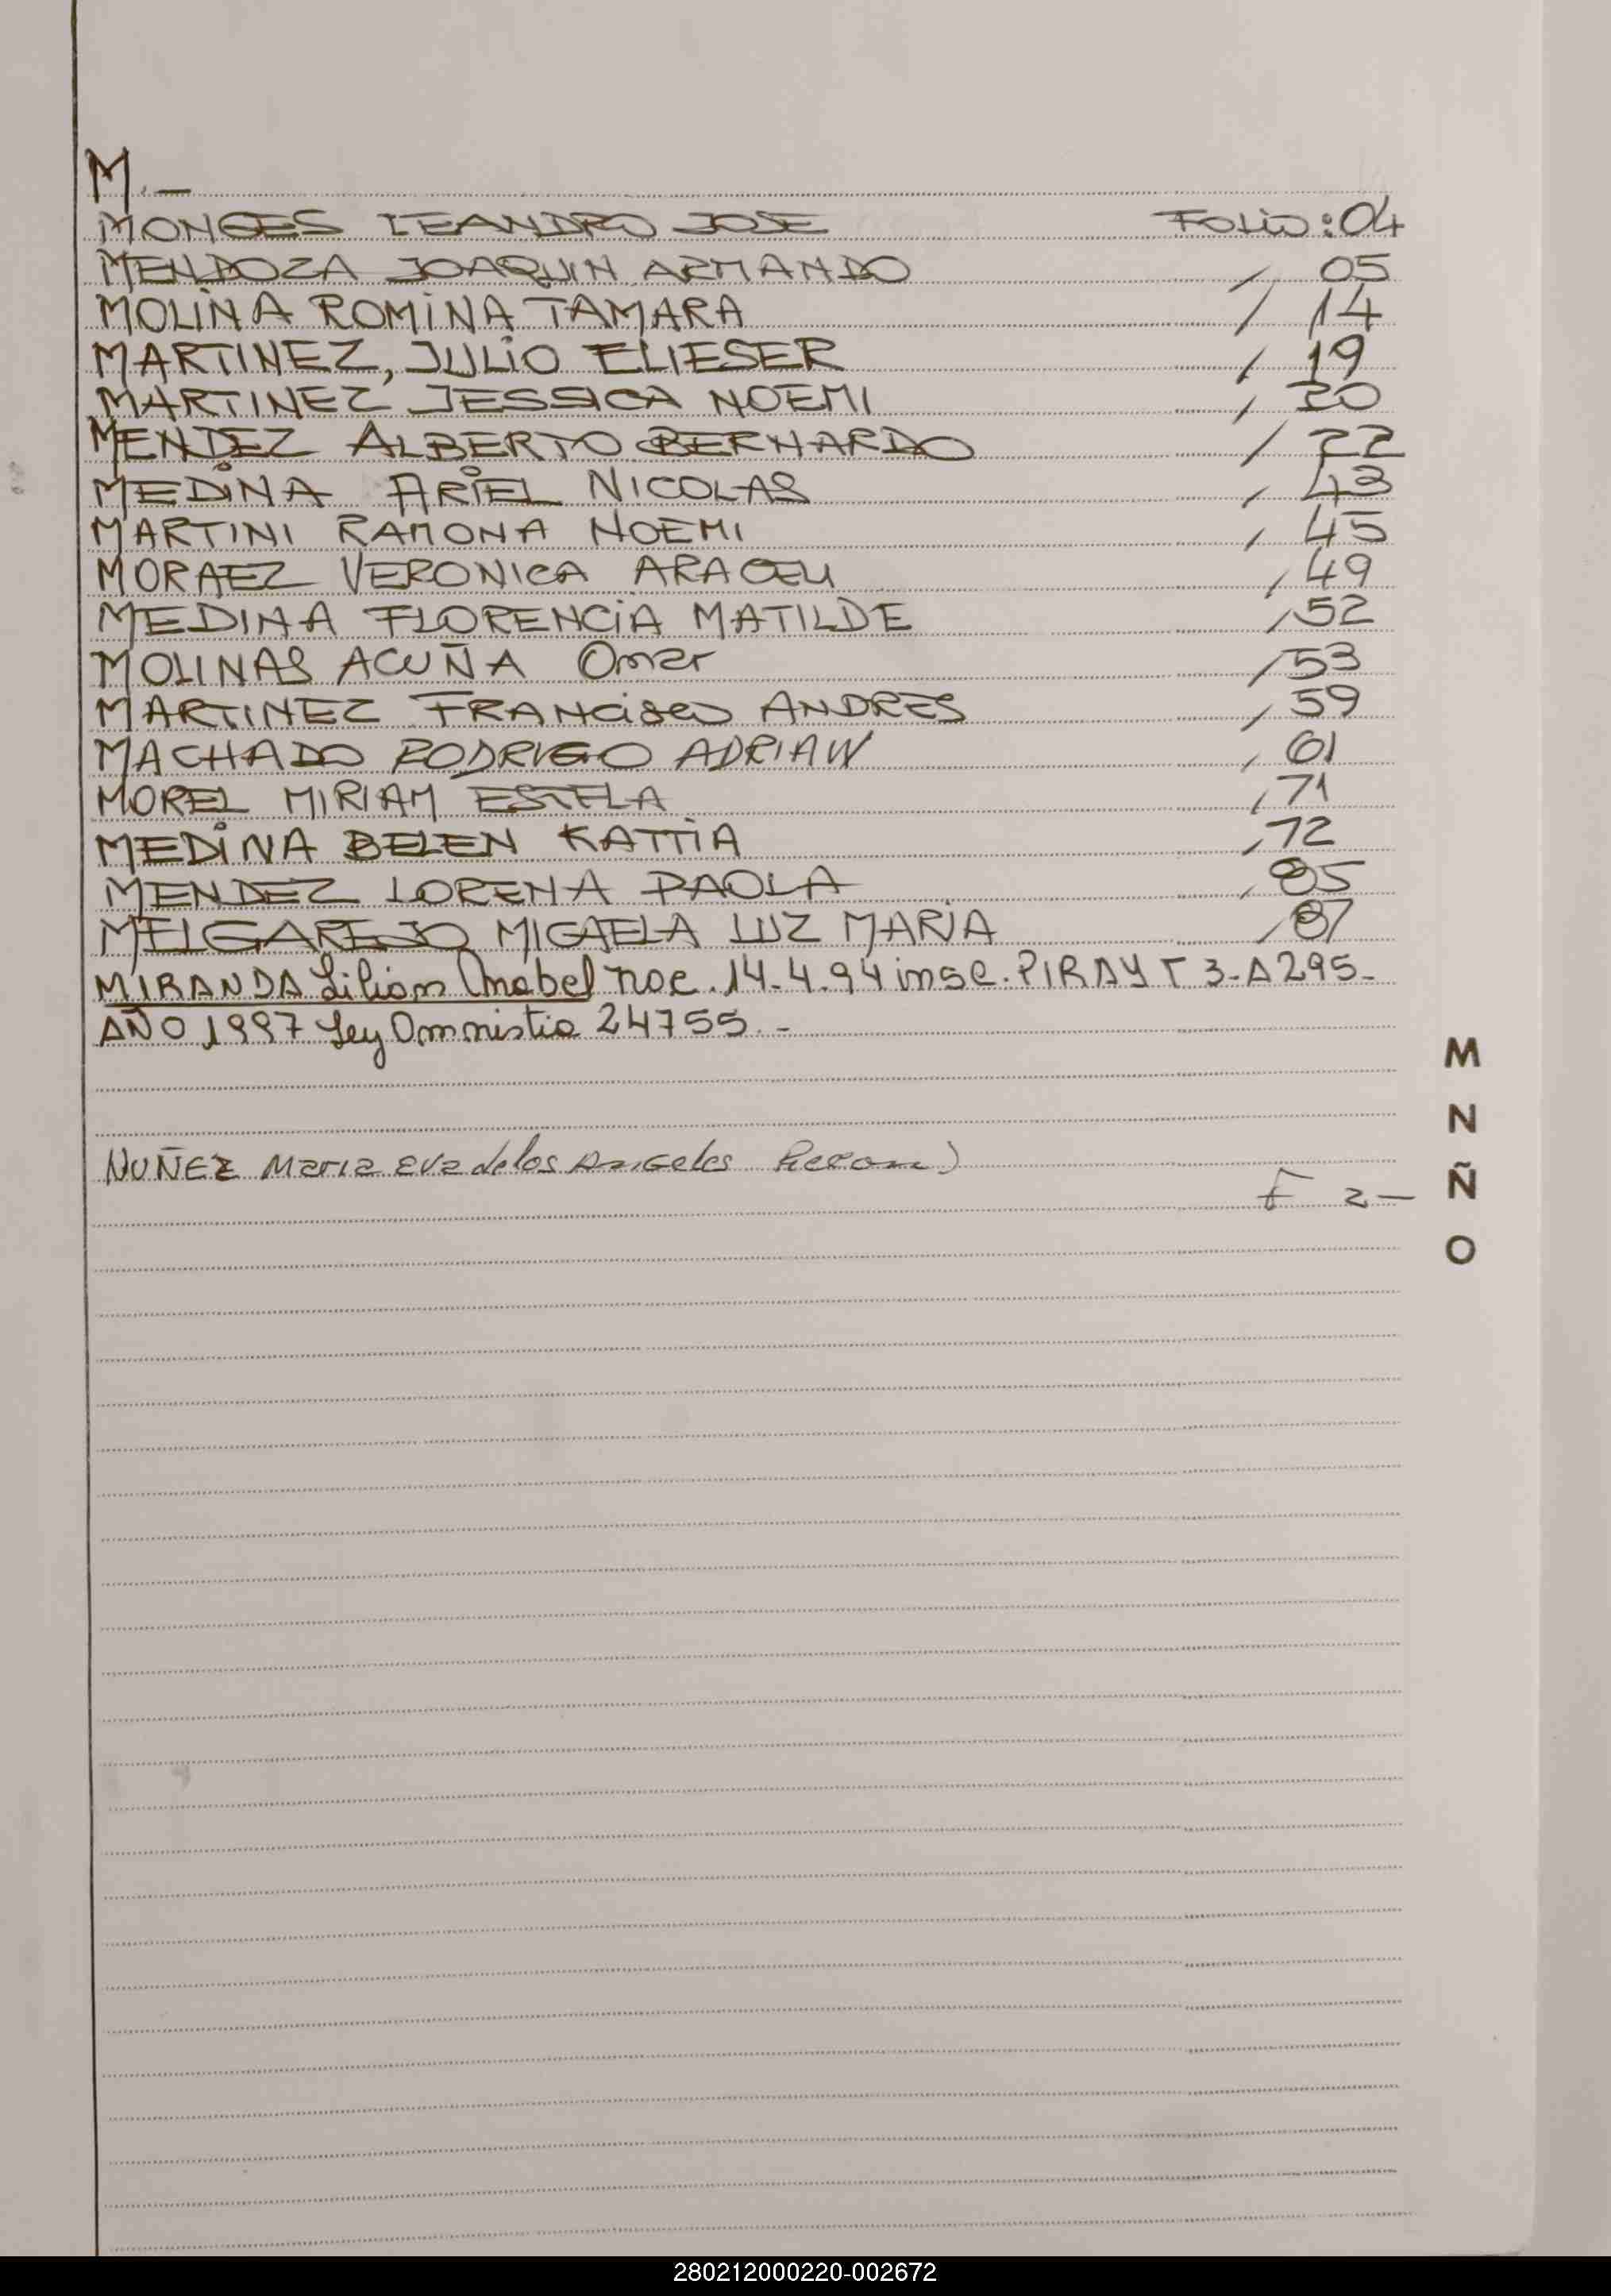 M.-
MONGES LEANDRO JOSE FOLIO: 04
MENDOZA JOAQUIN ARMANDO / 05
MOLINA ROMINA TAMARA / 14
MARTINEZ, JULIO ELIESER / 19
MARTINEZ JESSICA NOEMI / 20
MENDEZ ALBERTO BERNARDO / 22
MEDINA ARIEL NICOLAS / 43
MARTINI RAMONA NOEMI / 45
MORAEZ VERONICA ARACELI / 49
MEDINA FLORENCIA MATILDE / 52
MOLINAS ACUÑA Omar / 53
MARTINEZ FRANCISCO ANDRES / 59
MACHADO RODRIGO ADRIAN / 61
MOREL MIRIAM ESTELA / 71
MEDINA BELEN KATTIA / 72
MENDEZ LORENA PAOLA / 85
MELGAREJO MICAELA LUZ MARIA / 87
MIRANDA Lilian Mabel nac. 14-4.94 insc. PIRAY T 3-A 295-
AÑO 1997 Ley Amnistia 24755.-
M
N
NUÑEZ Maria Eva de los Angeles
F 2-
Ñ
O
280212000220-002672